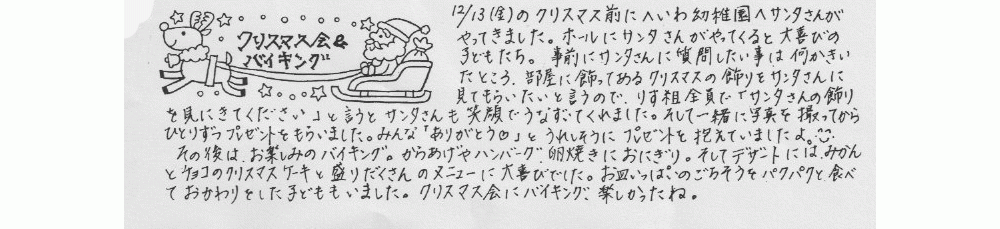 クリスマス会&
バイキング
12/13(金)のクリスマス前にへいわ幼稚園へサンタさんが
やってきました。ホールにサンタさんがやってくると大喜びの
子どもたち。事前にサンタさんに質問したい事は何かきい
たところ、部屋に飾ってあるクリスマスの飾りをサンタさんに
見てもらいたいと言うので、りす組全員で「サンタさんの飾り
を見にきてください」と言うとサンタさんも笑顔でうなずいてくれました。そして一緒に写真を撮ってから
ひとりずつプレゼントをもらいました。みんな「ありがとう♡」とうれしそうにプレゼントを抱えていましたよ。
その後は、お楽しみのバイキング。からあげやハンバーグ、卵焼きにおにぎり。そしてデザートには、みかん
とチョコのクリスマスケーキと盛りだくさんのメニューに大喜びでした。お皿いっぱいのごちそうをパクパクと食べ
ておかわりをした子どももいました。クリスマス会にバイキング、楽しかったね。